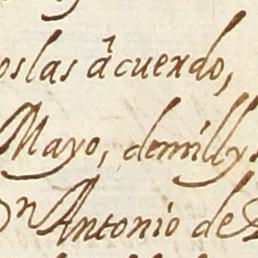 oslas acuerdo,
Mayo, demill y
Dn Antonio de